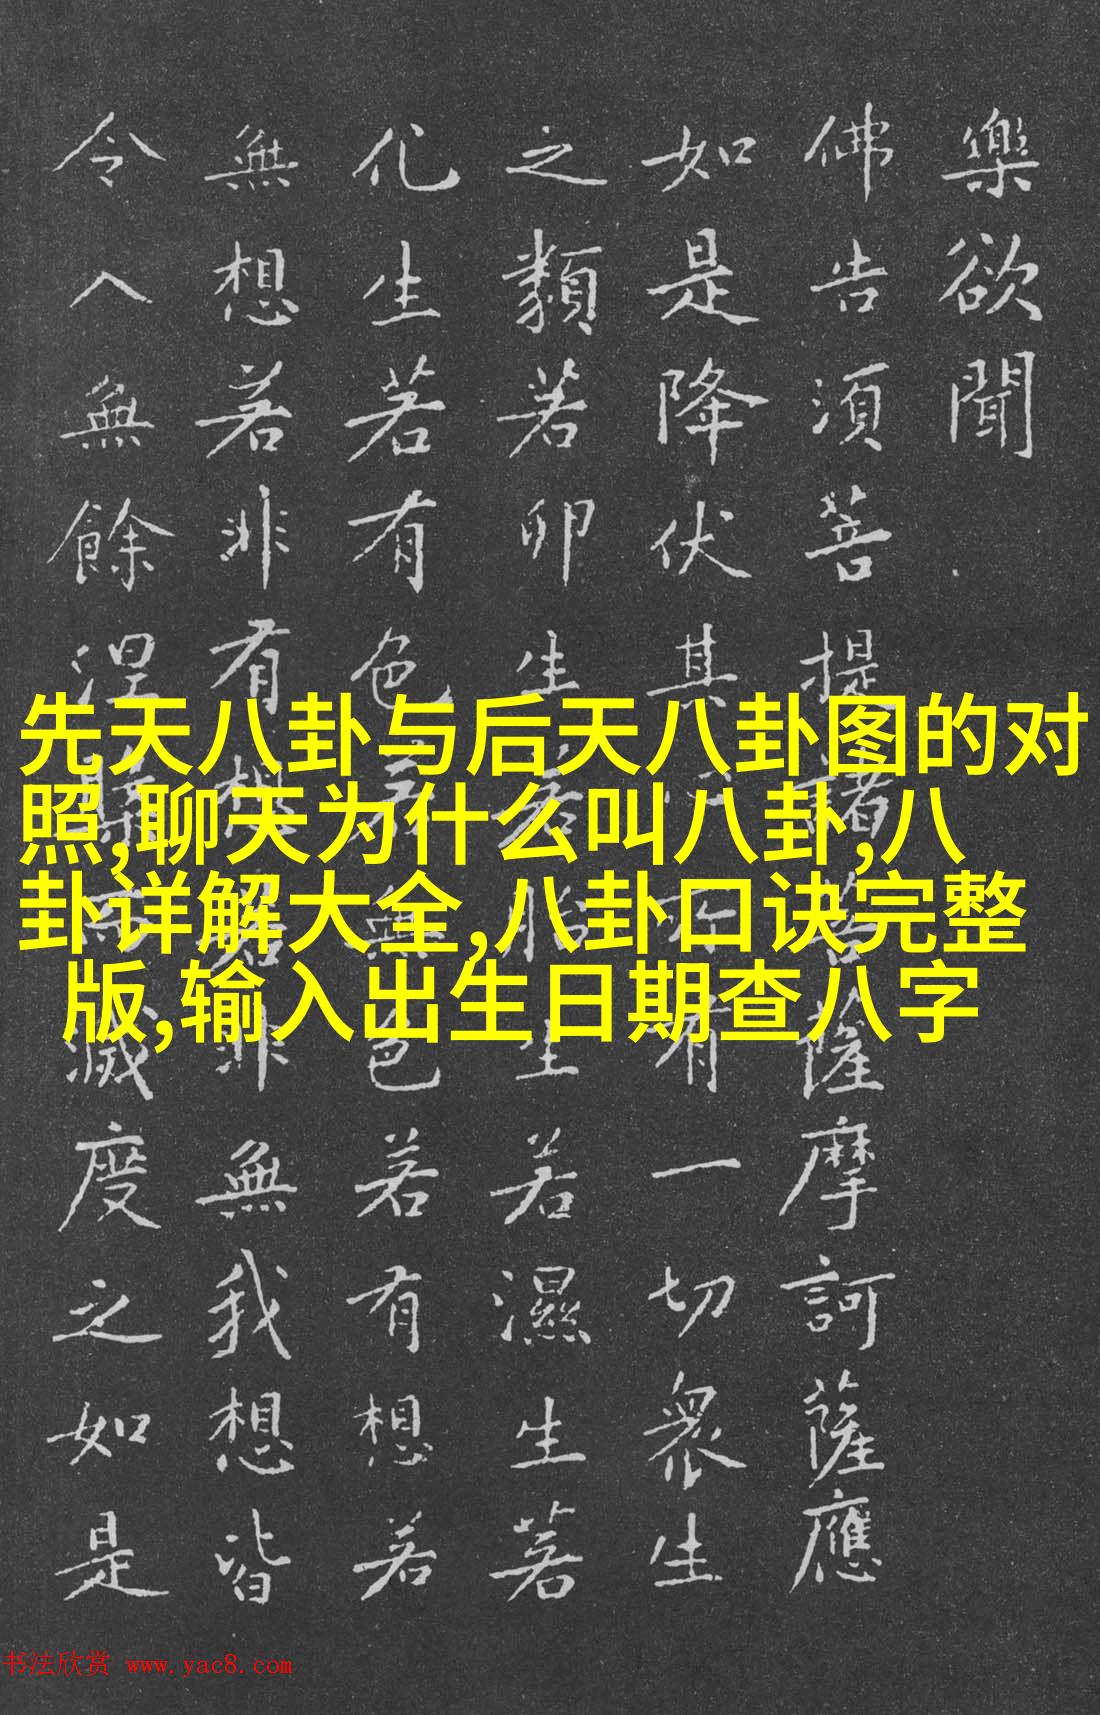 樂欲聞
佛告須菩提諸菩薩摩訶薩應
如是降伏其心所有一切眾生
之類若卵生若胎生若濕生若
化生若有色若無色若有想若
無想若非有想若非無我想皆
令入無餘涅槃而滅度之如是
先天八卦与后天八卦图的对
照,聊天为什么叫八卦,八
卦详解大全,八卦口诀完整
版,输入出生日期查八字
书法欣赏 www.yac8.com